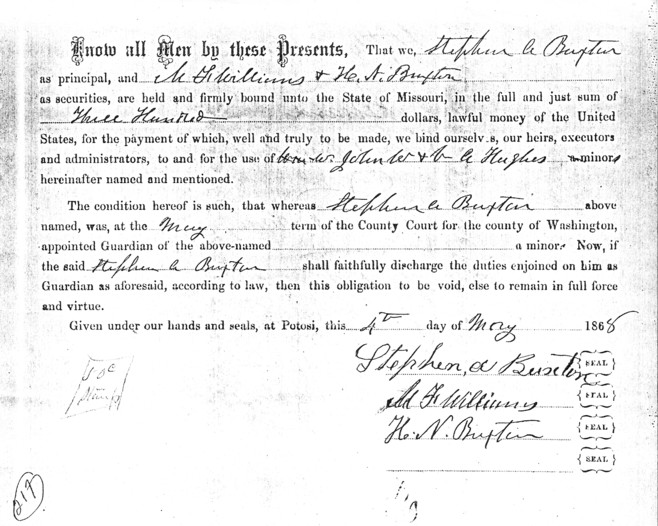 Know all Men by these Presents, That we, Stephen A Buxton
as principal, and M F Williams & H. N. Buxton
as securities, are held and firmly bound unto the State of Missouri, in the full and just sum of
Three Hundred dollars, lawful money of the United
States, for the payment of which, well and truly to be made, we bind ourselves, our heirs, executors
and administrators, to and for the use of Wm. John W & A Hughes a minors
hereinafter named and mentioned.
The condition hereof is such, that whereas Stephen A Buxton above
named, was, at the May term of the County Court for the county of Washington,
appointed Guardian of the above-named a minor. Now, if
the said Stephen A Buxton shall faithfully discharge the duties enjoined on him as
Guardian as aforesaid, according to law, then this obligation to be void, else to remain in full force
and virtue.
Given under our hands and seals, at Potosi, this 4th day of May 1868
Stephen, A Buxton {SEAL}
M F Williams {SEAL}
H. N. Buxton {SEAL}
{SEAL}
50c
Stamp
217